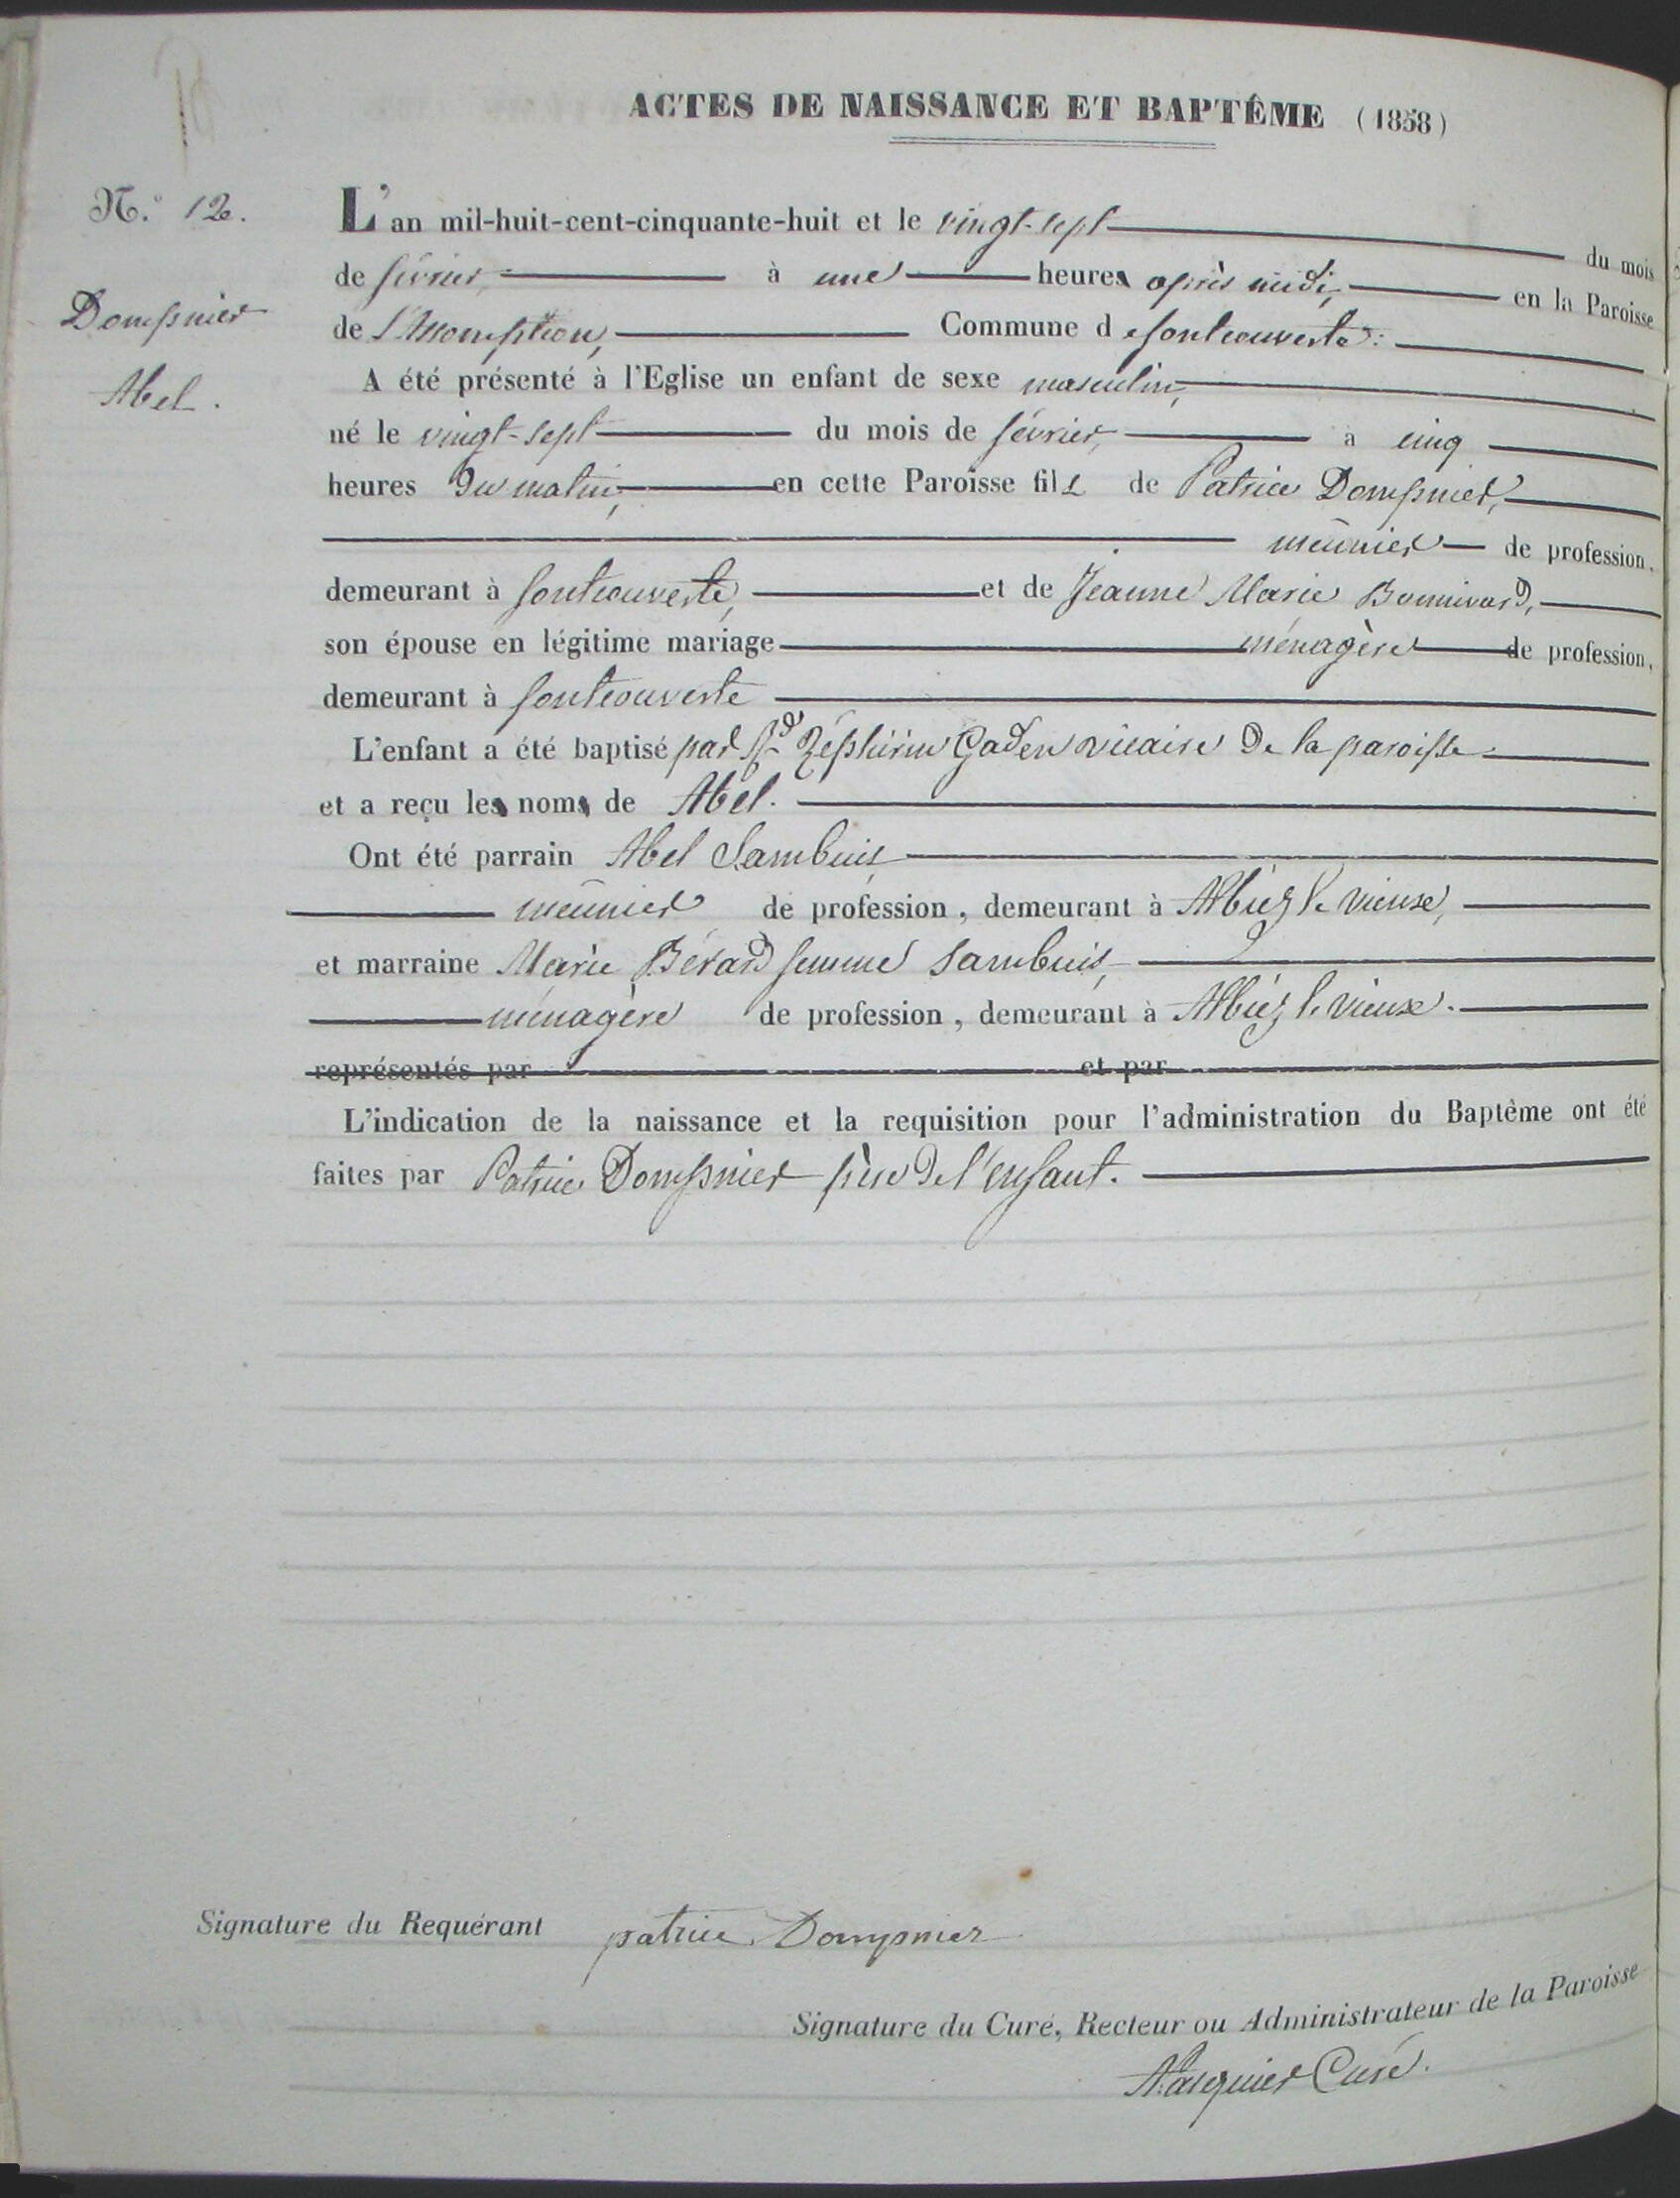 ACTES DE NAISSANCE ET BAPTÊME (1858)
N.° 12.
Dompnier
Abel.
L'an mil-huit-cent-cinquante-huit et le vingt-sept du mois
de février, à une heures après midi, en la Paroisse
de l'Assomption, Commune de fontcouverte:
A été présenté à l'Eglise un enfant de sexe masculin,
né le vingt-sept du mois de février, à cinq
heures du matin, en cette Paroisse fils de Patrice Dompnier,
meûnier de profession,
demeurant à fontcouverte, et de Jeanne Marie Bonnivard,
son épouse en légitime mariage ménagère de profession,
demeurant à fontcouverte
L'enfant a été baptisé par Rd Zéphirin Gaden vicaire de la paroisse
et a reçu les noms de Abel.
Ont été parrain Abel Sambuis,
meûnier de profession, demeurant à Albiez le vieux,
et marraine Marie Bérard femme Sambuis,
ménagère de profession, demeurant à Albiez le vieux.
représentés par et par
L'indication de la naissance et la requisition pour l'administration du Baptême ont été
faites par Patrice Dompnier père de l'enfant.
Signature du Requérant patrice Dompnier
Signature du Curé, Recteur ou Administrateur de la Paroisse
Curé.